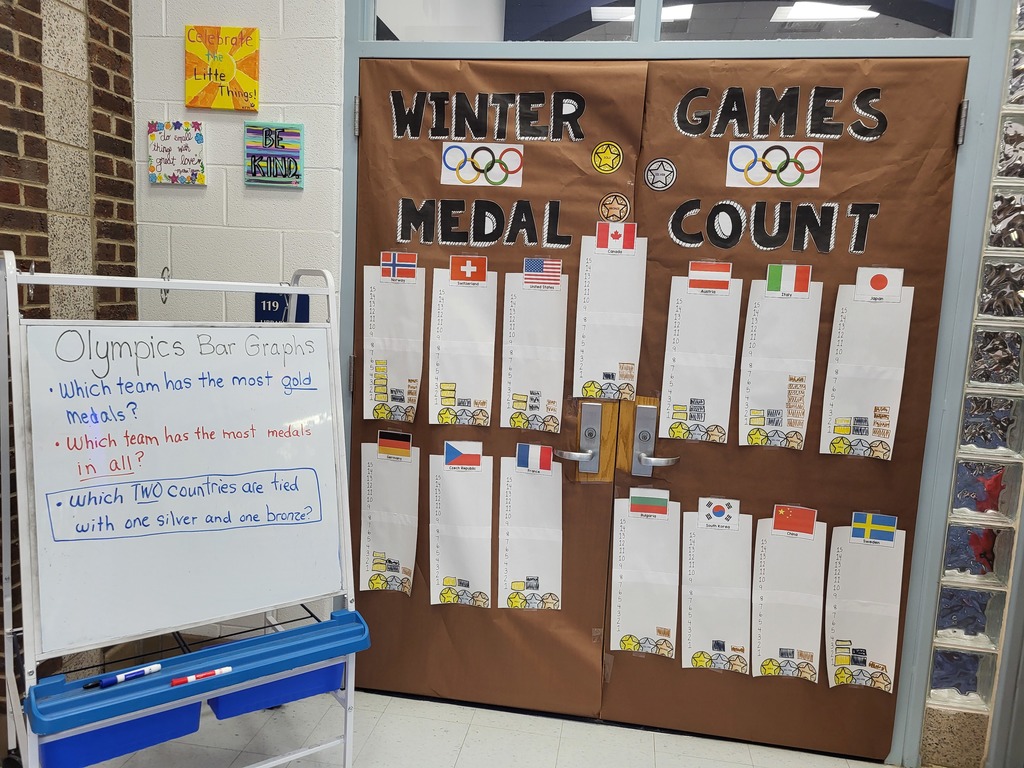 Celebrate
the
Litte
Things!
do small
things with
great love
BE
KIND
119
Olympics Bar Graphs
• Which team has the most gold
medals?
• Which team has the most medals
in all?
• Which TWO countries are tied
with one silver and one bronze?
WINTER GAMES
MEDAL COUNT
Norway
Switzerland
United States
Canada
Austria
Italy
Japan
Germany
Czech Republic
France
Bulgaria
South Korea
China
Sweden